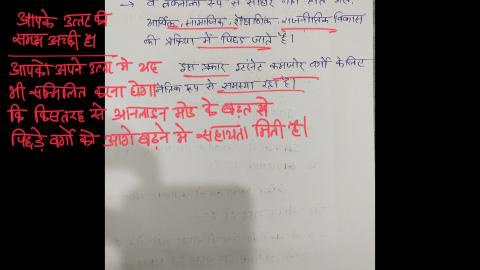 → वे तकनीकी रूप से साक्षर नहीं होते और
आर्थिक, सामाजिक, शैक्षणिक, राजनीतिक विकास
की प्रक्रिया में पिछड़ जाते हैं।
इस प्रकार इंटरनेट कमजोर वर्गों के लिए
रूप से समस्या रहा है।
आपके उत्तर की
समझ अच्छी है।
आपको अपने उत्तर में यह
भी सम्मिलित करना होगा
कि किस तरह से ऑनलाइन मोड के बढ़त से
पिछड़े वर्गों को आगे बढ़ने में सहायता मिली है।